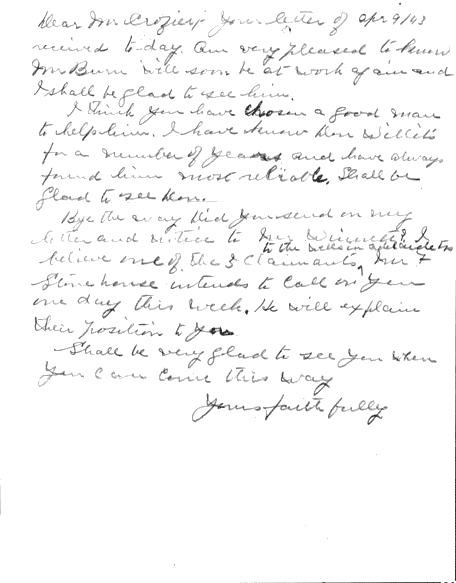 Dear Mr Crozier,- Your letter of apr 9/43
received to-day. Am very pleased to know
Mr Burn will soon be at work again and
I shall be glad to see him.
I think you have chosen a good man
to help him. I have know Don Willits
for a number of years and have always
found him most reliable. Shall be
glad to see Don.
Bye the way did you send on my
letter and notice to Mr ? I
to the wells in
believe one of the 3 Claimants, Mr F
Stonehouse intends to call on you
one day this week. He will explain
their position to you
Shall be very glad to see you when
you can come this way
Yours faithfully